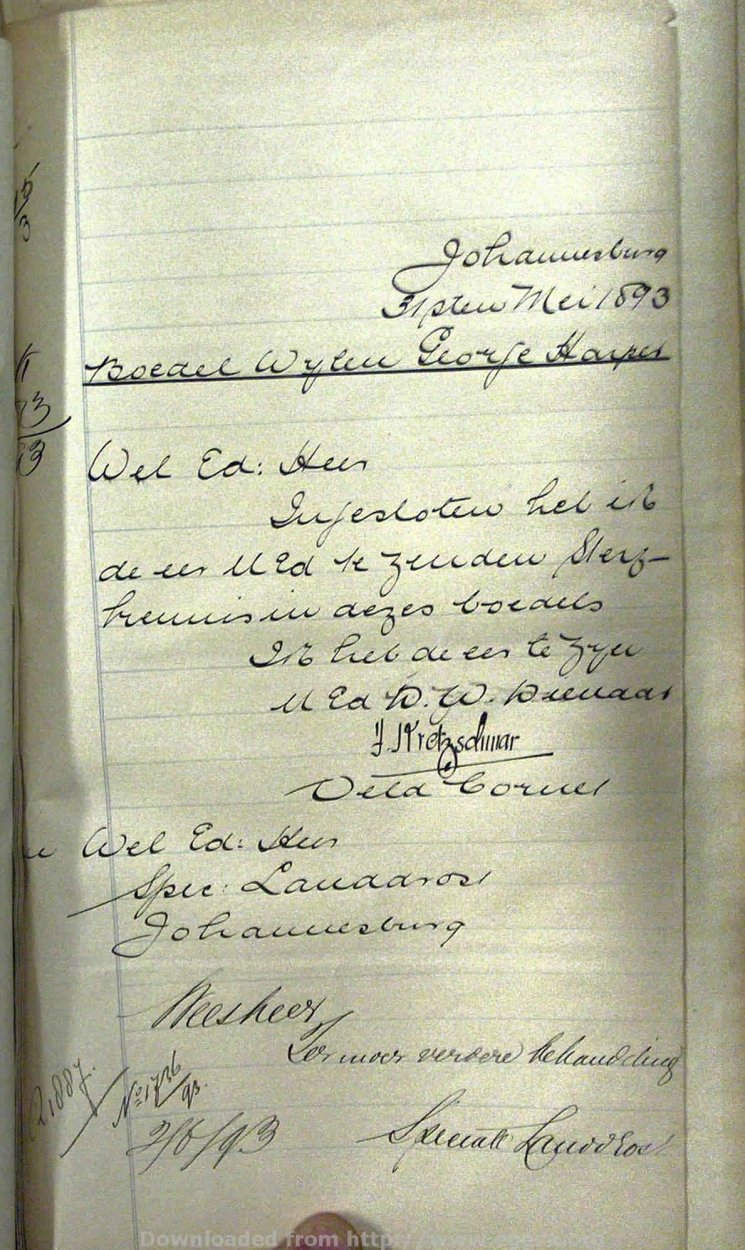 Johannesburg
31sten Mei 1893
Boedel Wylen George Harper
Wel Ed: Heer
Ingesloten heb ik
de eer U Ed te zenden Sterf-
kennis in dezes boedels
Ik heb de eer te zyn
U Ed D. W. Dienaar
J. Kretzschmar
Veld Cornet
Wel Ed: Heer
Spec: Landdrost
Johannesburg
Weesheer
Voor verdere behandeling
Speciale Landdrost
R1,887.
No 1736/93.
2/6/93
Downloaded from http://www.